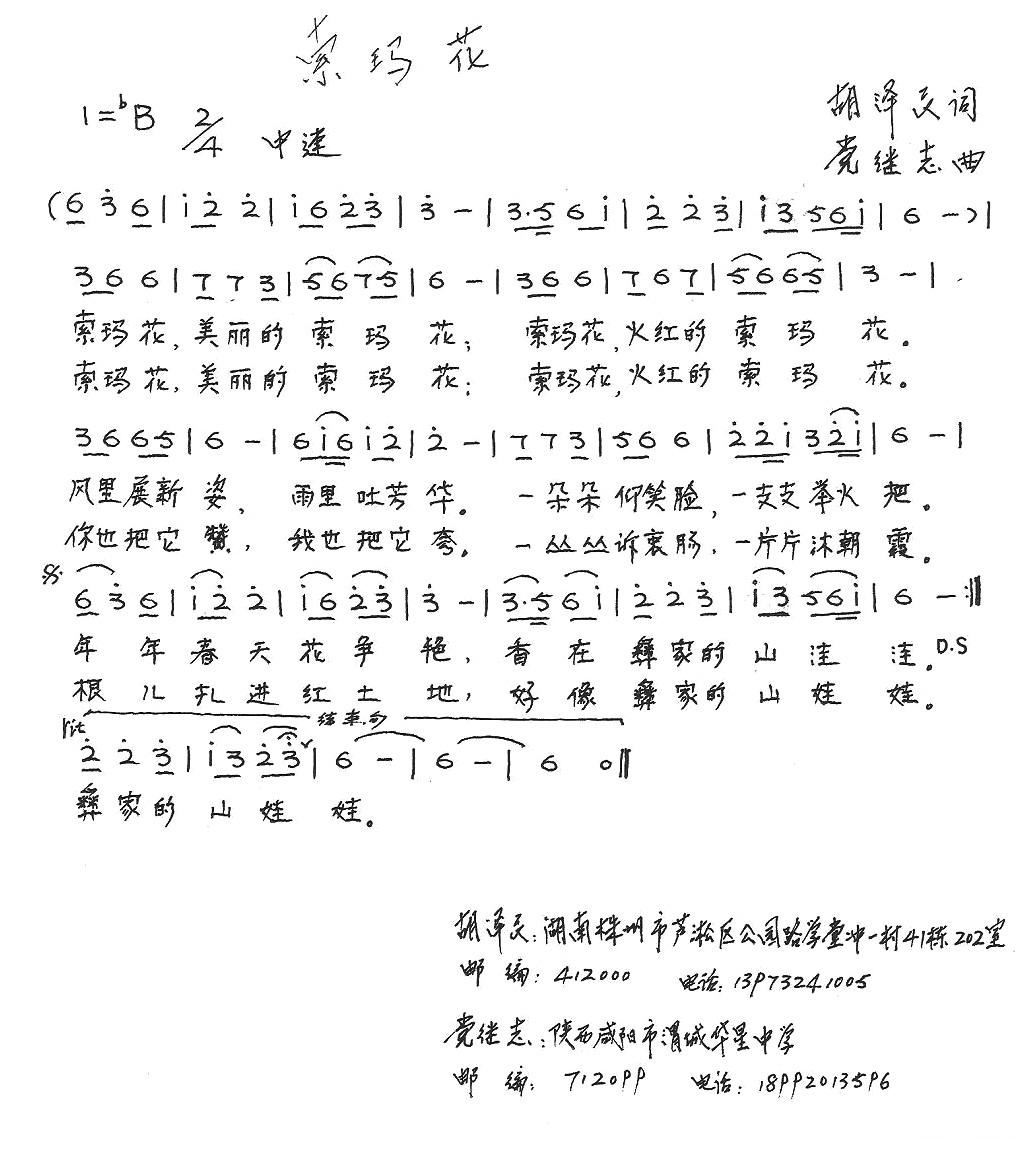 索玛花
1=ᵇB 2/4 中速
胡泽民词
党继志曲
(6 3̇ 6 | i 2̇ 2̇ | i 6 2̇ 3̇ | 3̇ - | 3·5 6 i | 2̇ 2̇ 3̇ | i 3 5 6 i | 6 -) |
3 6 6 | 7 7 3 | 5 6 7 5 | 6 - | 3 6 6 | 7 6 7 | 5 6 6 5 | 3 - |
索玛花,美丽的索玛花;索玛花,火红的索玛花。
索玛花,美丽的索玛花;索玛花,火红的索玛花。
3 6 6 5 | 6 - | 6 i 6 i 2̇ | 2̇ - | 7 7 3 | 5 6 6 | 2̇ 2̇ i 3 2̇ i | 6 - |
风里展新姿,雨里吐芳华。一朵朵仰笑脸,一支支举火把。
你也把它赞,我也把它夸。一丛丛诉衷肠,一片片沐朝霞。
𝄋 6 3̇ 6 | i 2̇ 2̇ | i 6 2̇ 3̇ | 3̇ - | 3·5 6 i | 2̇ 2̇ 3̇ | i 3 5 6 i | 6 - :‖
年年春天花争艳,香在彝家的山洼洼。D.S
根儿扎进红土地,好像彝家的山娃娃。
rit 结束句
2̇ 2̇ 3̇ | i 3 2̇ 3̇ | 6 - | 6 - | 6 0 ‖
彝家的山娃娃。
胡泽民:湖南株州市芦淞区公园路学堂冲一村41栋202室
邮编:412000 电话:13973241005
党继志:陕西咸阳市渭城华星中学
邮编:712099 电话:18992013596